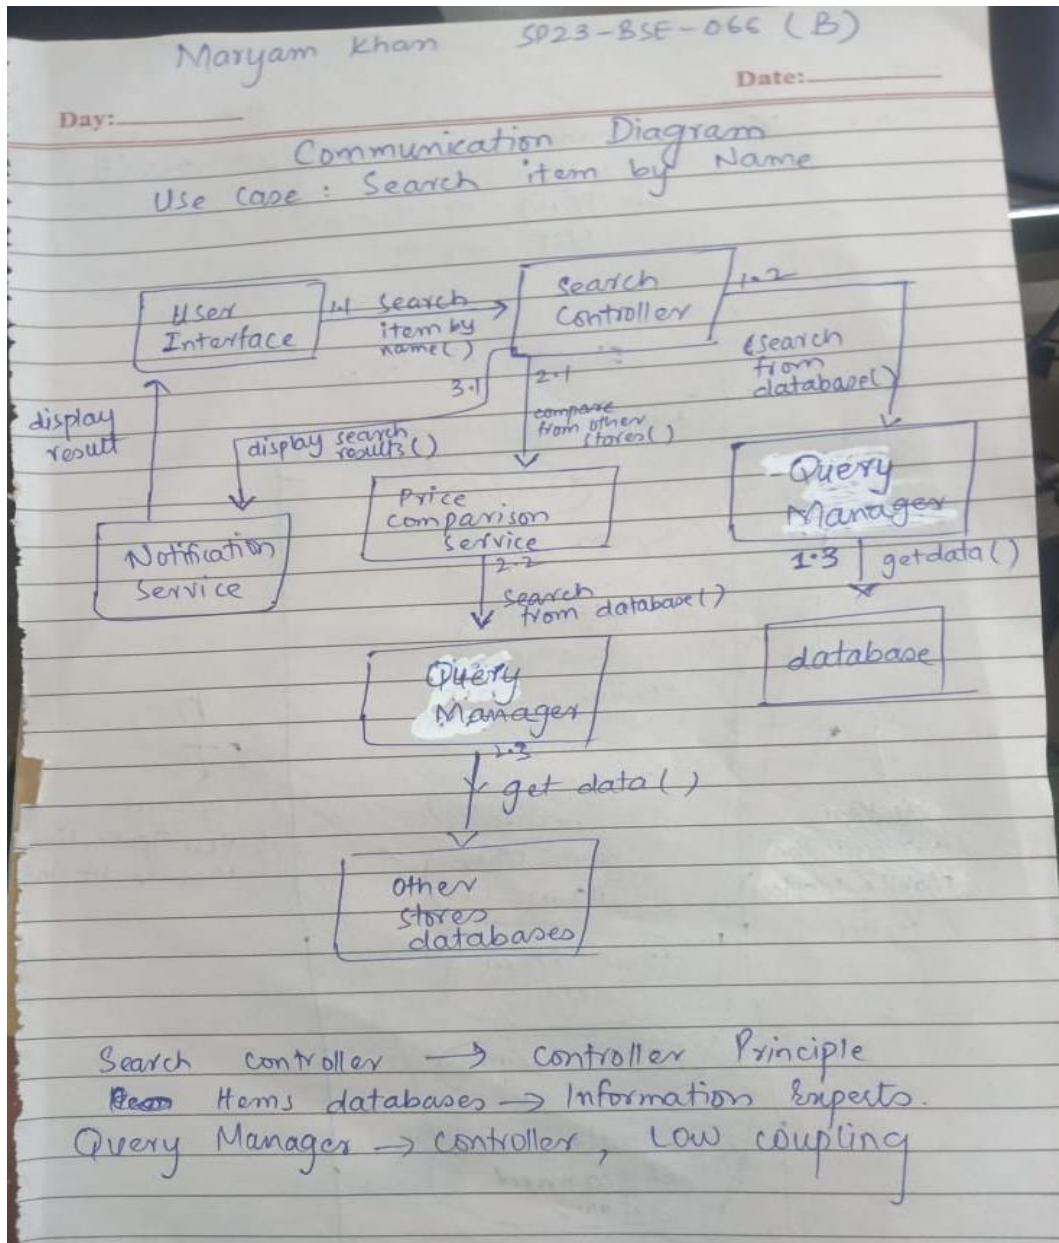 Maryam Khan SP23-BSE-066 (B)
Date:
Day:
Communication Diagram
Use Case : Search item by Name
User
Interface
1.1 search
item by
name()
Search
Controller
1.2
search
from
database()
3.1
2.1
compare
from other
stores()
display
result
display search
results()
Notification
Service
Price
comparison
service
Query
Manager
2.2
search
from database()
1.3 getdata()
database
Query
Manager
get data()
other
stores
databases
Search controller → controller Principle
Items databases → Information Experts.
Query Manager → controller, Low coupling